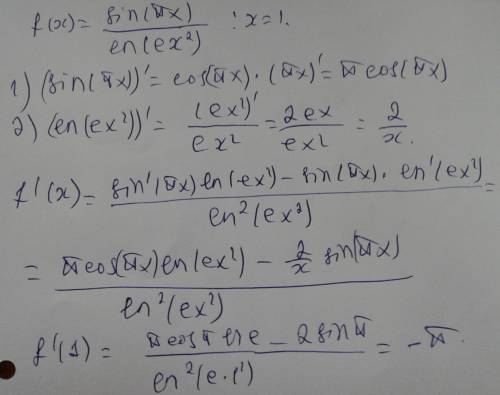 f(x) = sin(πx) / ln(ex²) ; x=1.
1) (sin(πx))' = cos(πx)·(πx)' = π cos(πx)
2) (ln(ex²))' = (ex²)' / ex² = 2ex / ex² = 2/x.
f'(x) = (sin'(πx) ln(ex²) - sin(πx)· ln'(ex²)) / ln²(ex²) =
= (π cos(πx) ln(ex²) - 2/x sin(πx)) / ln²(ex²)
f'(1) = (π cosπ ln e - 2 sinπ) / ln²(e·1²) = -π.